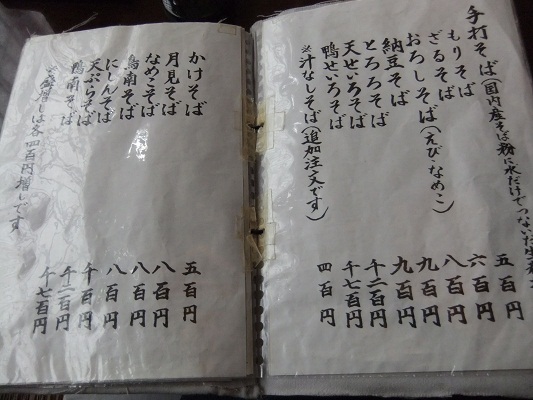 手打そば(国内産そば粉に水だけでつないだ生
もりそば 五百円
ざるそば 六百円
おろしそば(えび・なめこ) 八百円
納豆そば 九百円
とろろそば 九百円
天せいろそば 千二百円
鴨せいろそば 千七百円
※汁なしそば(追加注文です) 四百円
かけそば 五百円
月見そば 八百円
なめこそば 八百円
鳥南そば 八百円
にしんそば 千百円
天ぷらそば 千二百円
鴨南そば 千七百円
増しは各四百円増しです